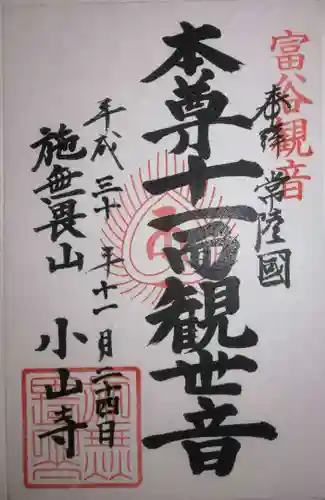 富谷観音
奉拝 常陸國
本尊十一面観世音
平成三十年十一月二十四日
施無畏山 小山寺